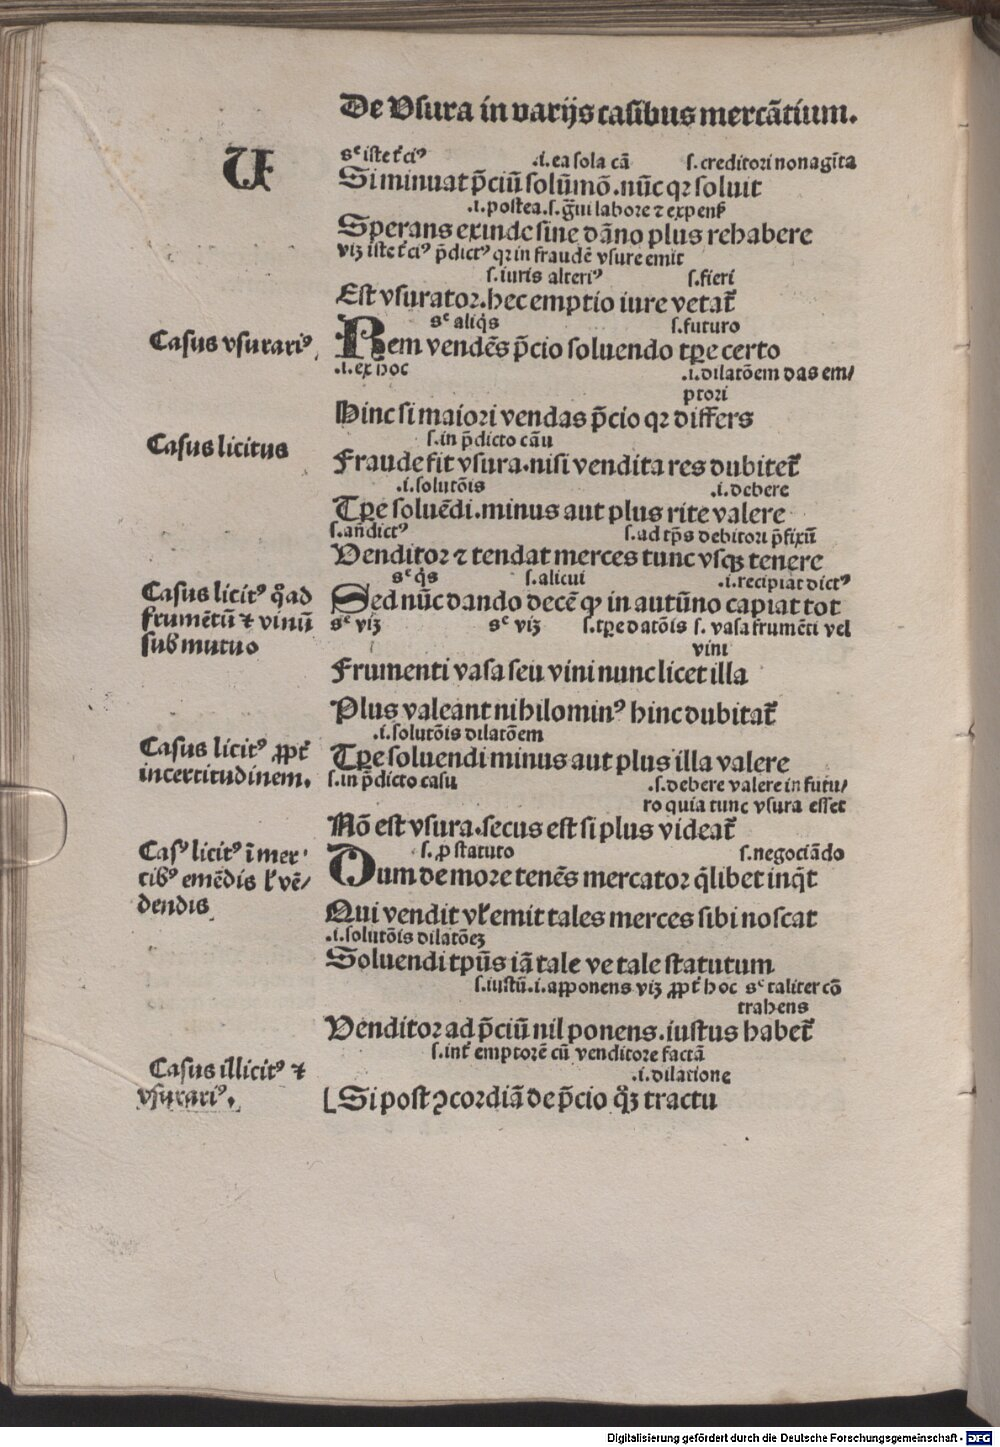 De Vsura in varijs casibus mercãtium.
V
sᶜ iste t̃ciꝰ .i. ea sola cã s. creditori non agñta
Si minuat p̃ciũ solũmõ. nũc qꝛ soluit
.i. postea. s. g̃ui labore ⁊ expenß
Sperans exinde sine dãno plus rehabere
viꝫ iste t̃ciꝰ p̃dictꝰ qꝛ in fraudẽ vsure emit
s. iuris alteriꝰ s. fieri
Est vsurator. hec emptio iure vetat᷑
sᶜ aliq̇s s. futuro
Casus vsurariꝰ.
Rem vendẽs p̃cio soluendo tꝑe certo
.i. ex hoc .i. dilatõem das em/
ptori
Hinc si maiori vendas p̃cio qꝛ differs
s. in p̃dicto cãu
Casus licitus
Fraude fit vsura. nisi vendita res dubitet᷑
.i. solutõis .i. debere
Tꝑe soluẽdi. minus aut plus rite valere
s. añdictꝰ s. ad tp̃s debitori p̃fixũ
Venditor ⁊ tendat merces tunc vsqꝫ tenere
sᶜ q̇s s. alicui .i. recipiat dictꝰ
Casus licitꝰ q̊ad
frumẽtũ ⁊ vinũ
sub mutuo
Sed nũc dando decẽ ꝙ in autũno capiat tot
sᶜ viꝫ sᶜ viꝫ s. tꝑe datõis s. vasa frumẽti vel
vini
Frumenti vasa seu vini nunc licet illa
Plus valeant nihilominꝰ hinc dubitat᷑
.i. solutõis dilatõem
Casus licitꝰ ꝓpt᷑
incertitudinem.
Tꝑe soluendi minus aut plus illa valere
s. in p̃dicto casu .s. debere valere in futu/
ro quia tunc vsura esset
Nõ est vsura. secus est si plus videat᷑
s. ꝓ statuto s. negociãdo
Casꝰ licitꝰ ĩ mer-
cibꝰ emẽdis ł vẽ/
dendis
Dum de more tenẽs mercator q̃libet inq̇t
Qui vendit vł emit tales merces sibi noscat
.i. solutõis dilatõeꝫ
Soluendi tpũs iã tale ve tale statutum
s. iustũ. i. apponens viꝫ ꝓpt᷑ hoc sᶜ taliter cõ
trahens
Venditor ad p̃ciũ nil ponens. iustus habet᷑
s. int᷑ emptorẽ cũ venditore factã
.i. dilatione
Casus illicitꝰ ⁊
vsurariꝰ.
[Si post ꝯcordiã de p̃cio q̃ꝫ tractu
Digitalisierung gefördert durch die Deutsche Forschungsgemeinschaft - DFG